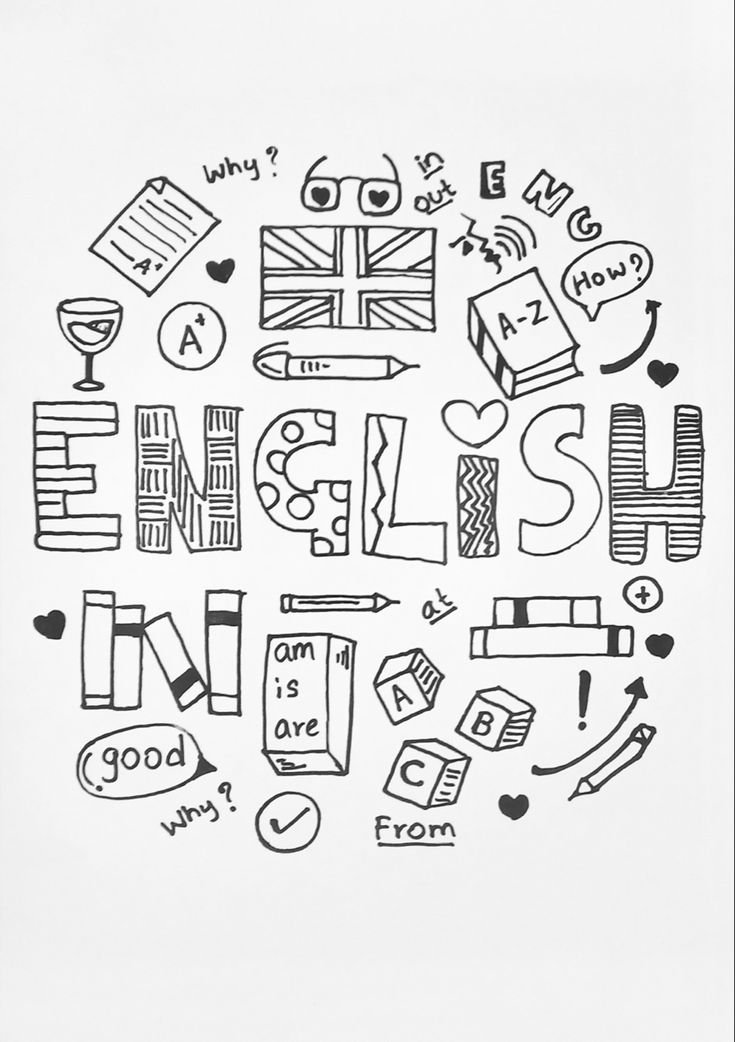 Why?
in
out
ENG
A+
How?
A-Z
A+
ENGLiSH
at
+
am
is
are
A
B
C
!
good
Why?
From